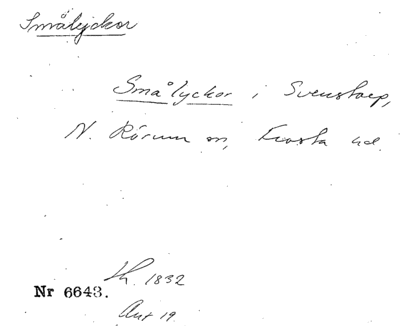 Smålyckor
Smålyckor i Svenstorp,
N. Rörum sn, Frosta hd.
Lh. 1832
Nr 6643.
Akt 19